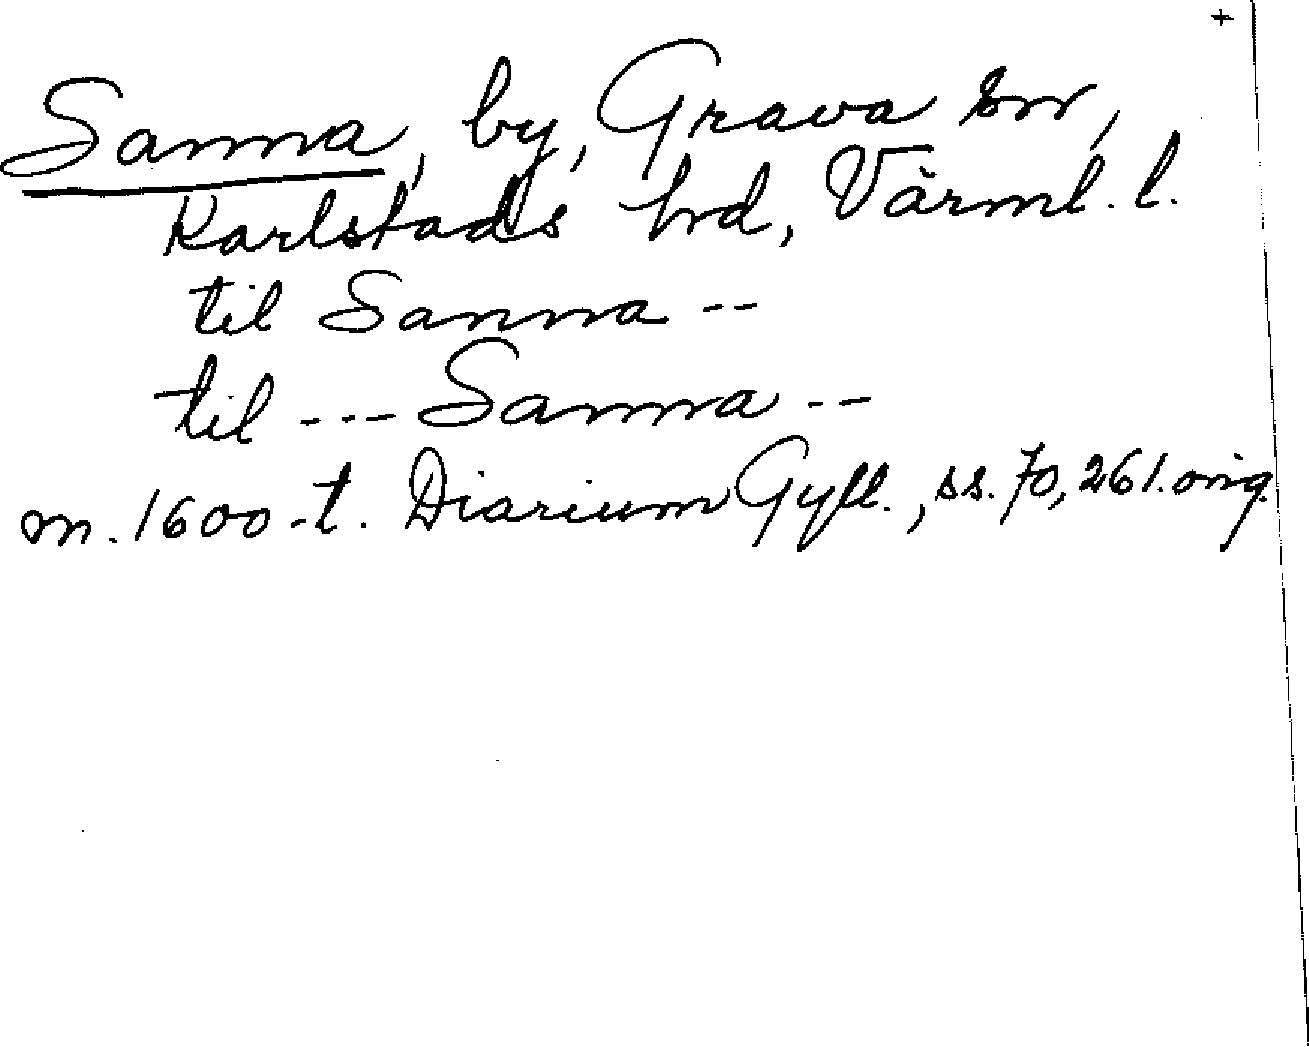 +
Sanna, by, Grava sn,
Karlstads hd, Värml. l.
til Sanna --
til --- Sanna --
m. 1600-t. Diarium Gyll., ss. 70, 261. orig.